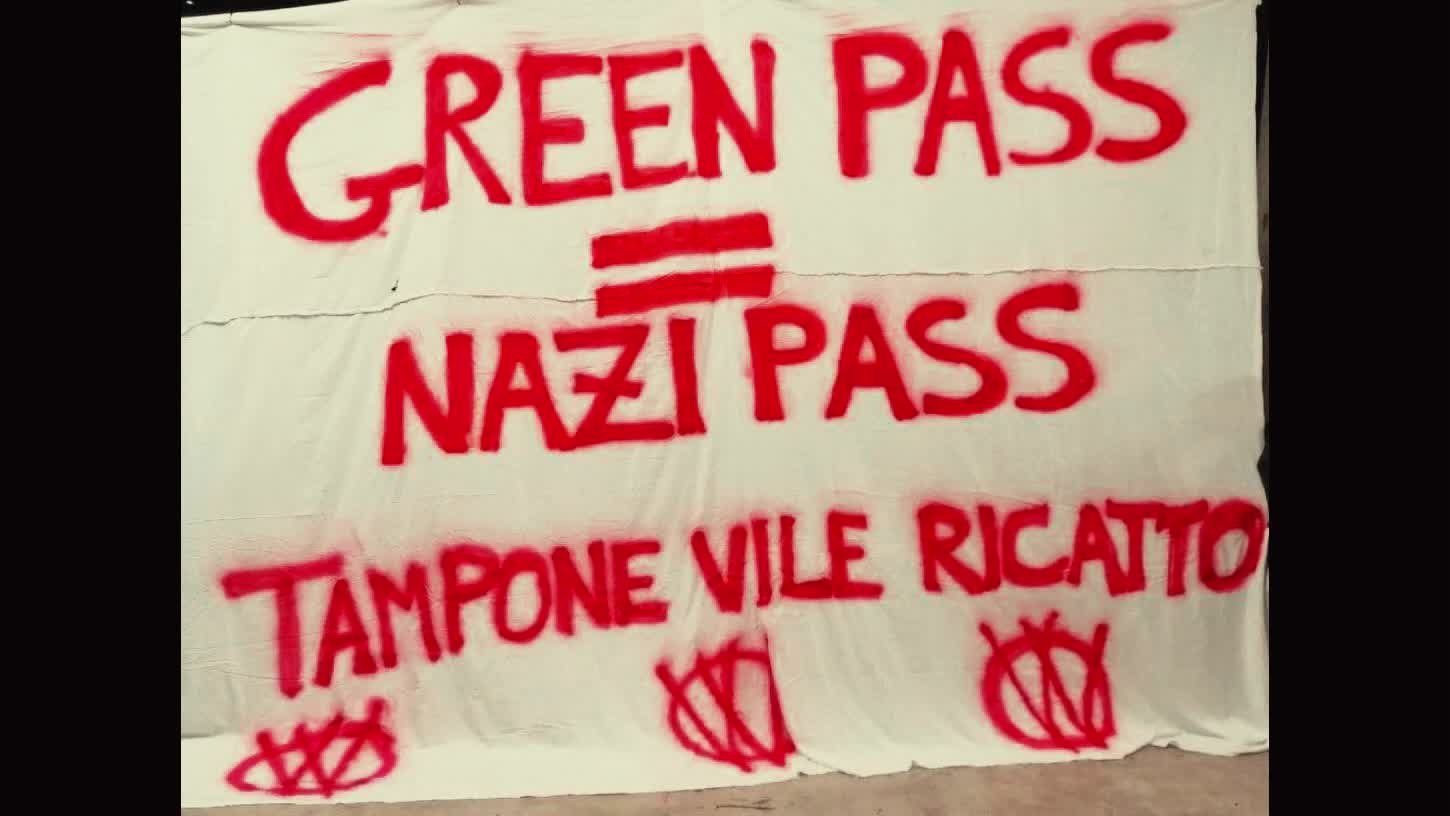 GREEN PASS
=
NAZI PASS
TAMPONE VILE RICATTO